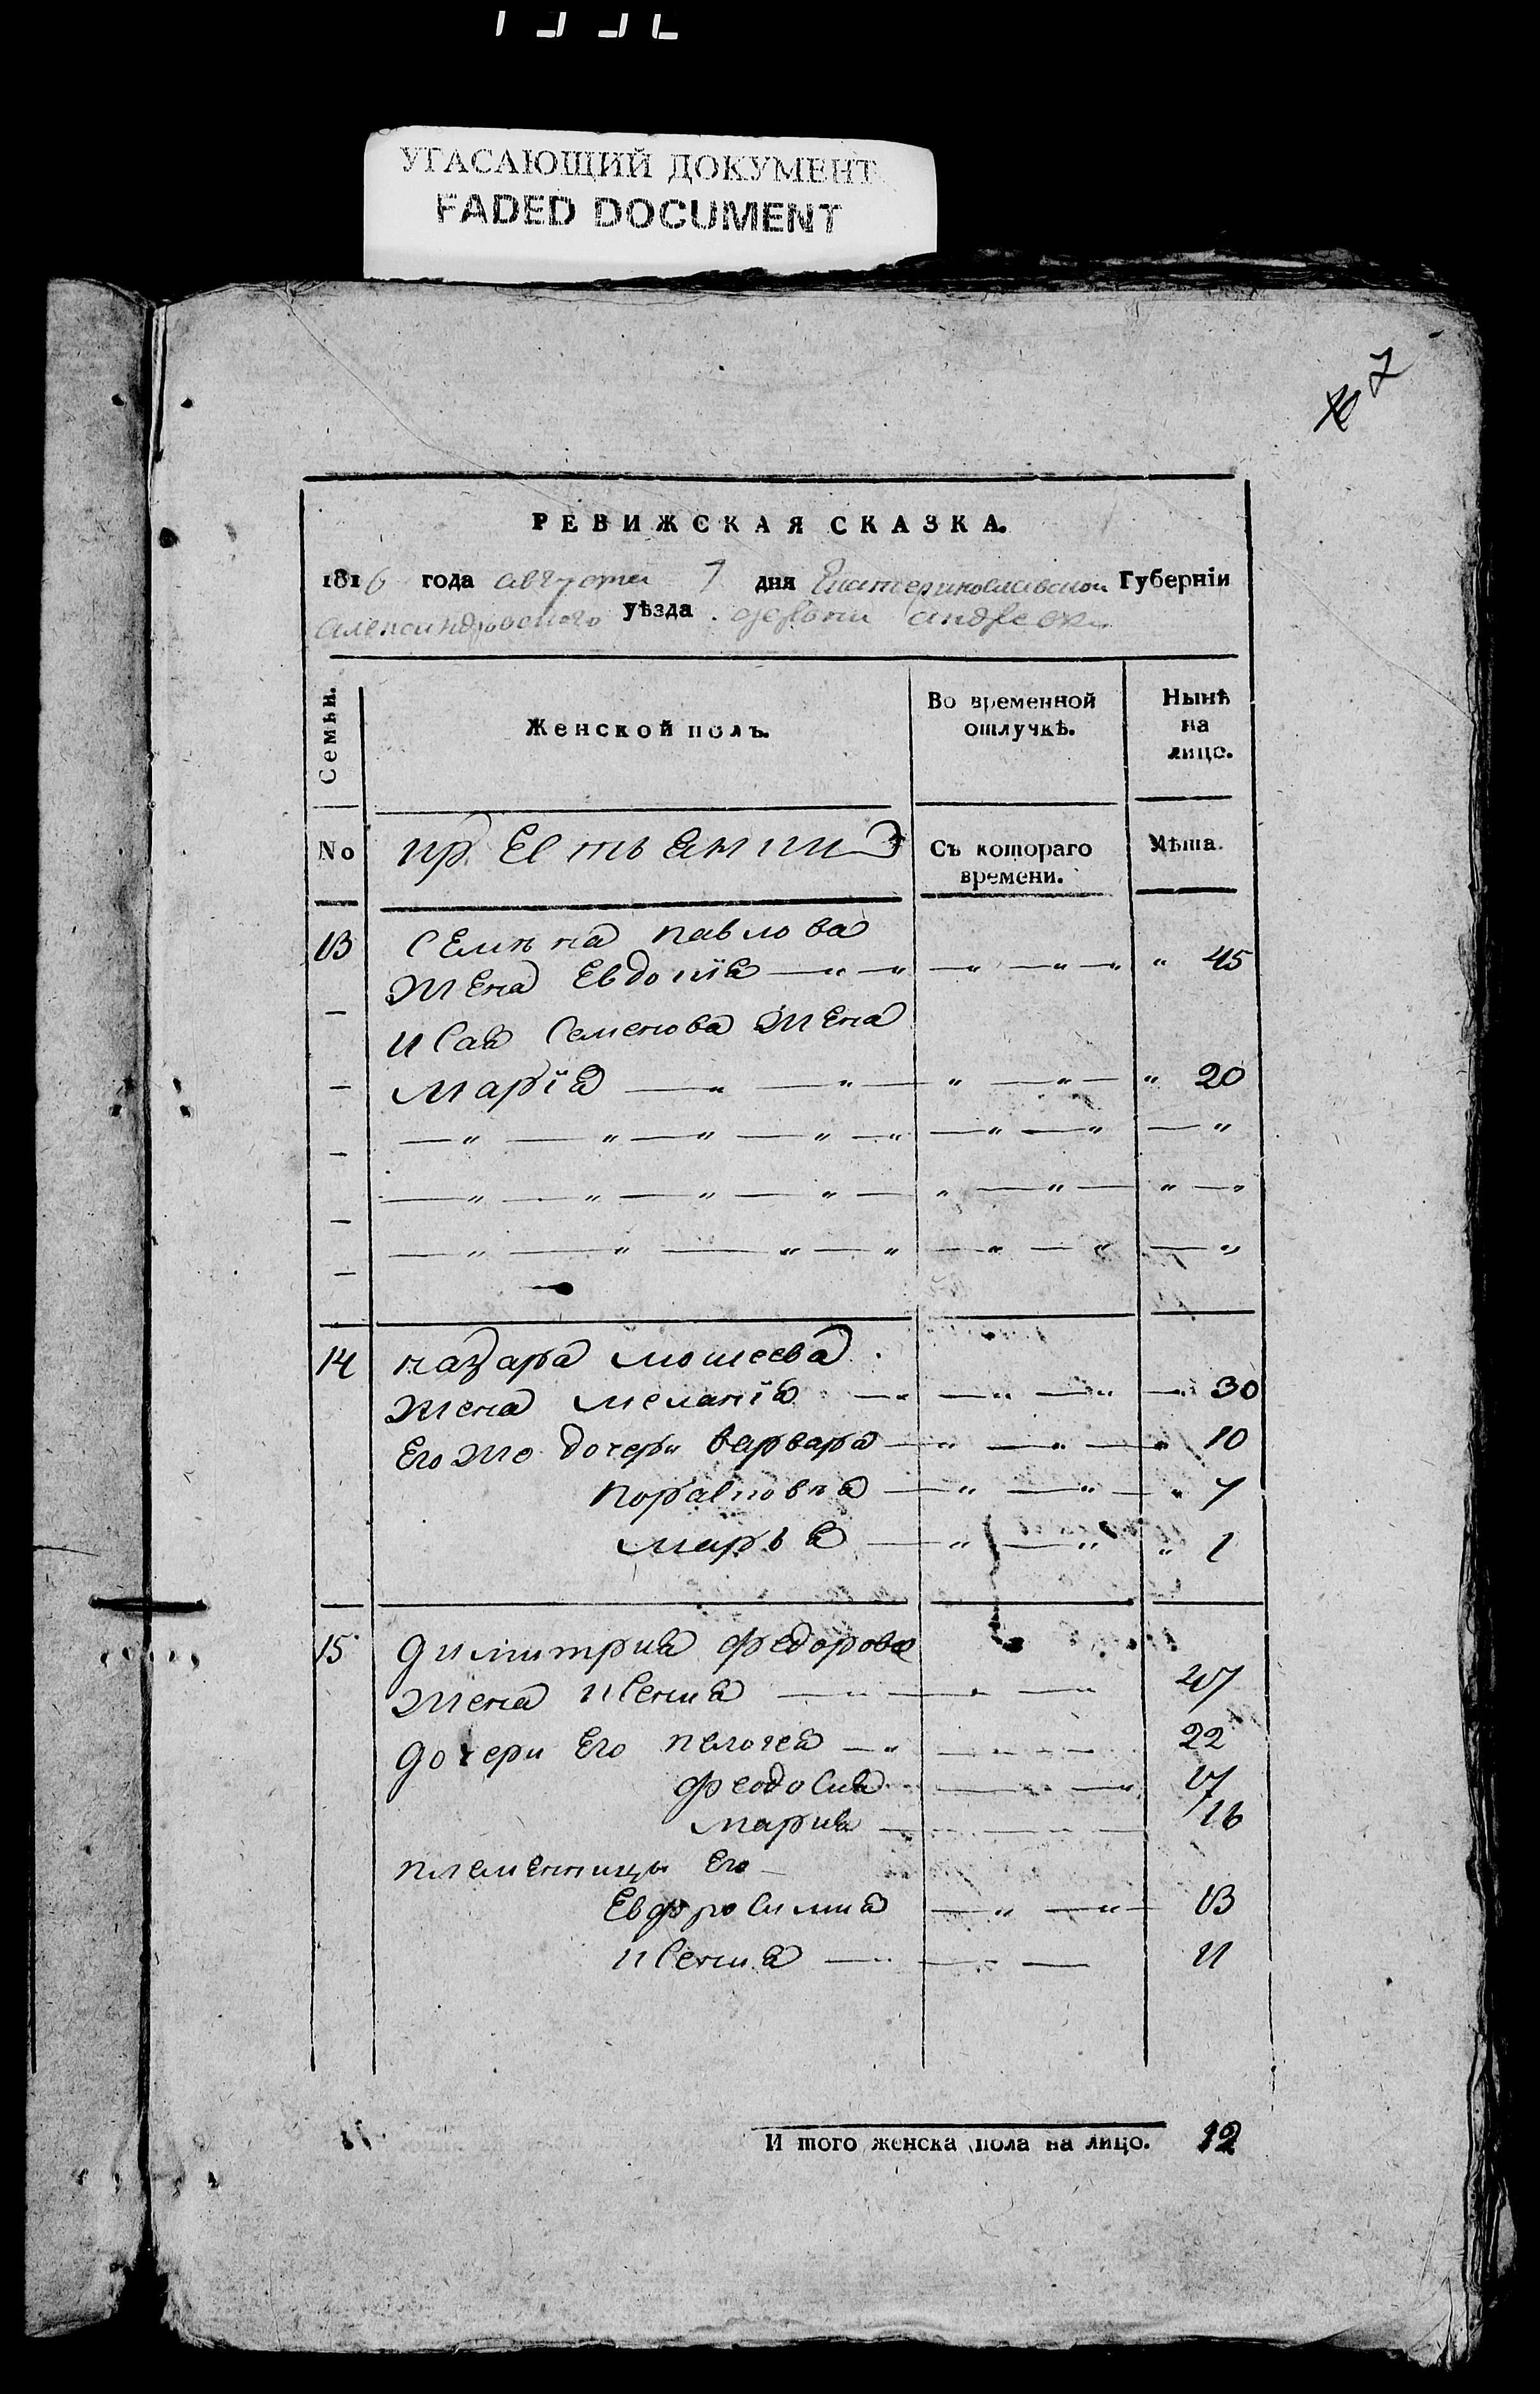 УГАСАЮЩИЙ ДОКУМЕНТ
FADED DOCUMENT
7
РЕВИЖСКАЯ СКАЗКА.
1816 года августа 7 дня Екатеринославской Губернїи
александровского уѣзда деревни андреевки
Семьи.
Женской полъ.
Во временной
отлучкѣ.
Нынѣ
на
лицо.
No
крестьянки
Съ котораго
времени.
Лѣта.
13 Семена павлова
жена Евдокїя 45
исая Семенова жена
марїя 20
14 назара мосеева
жена меланїя 30
Его же дочери варвара 10
7
марья 1
15 димитрия федорова
жена ксения 47
дочери Его пелагея 22
феодосия 17
мария 16
племенницы Его
Евфросиния 13
ксения 11
И того женска пола на лицо. 12